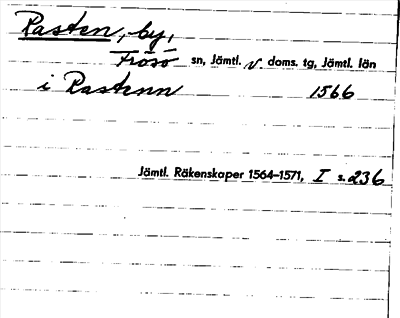 Rasten, by,
Frösö sn, Jämtl. v. doms. tg, Jämtl. län
i Rastenn 1566
Jämtl. Räkenskaper 1564-1571, I s. 236